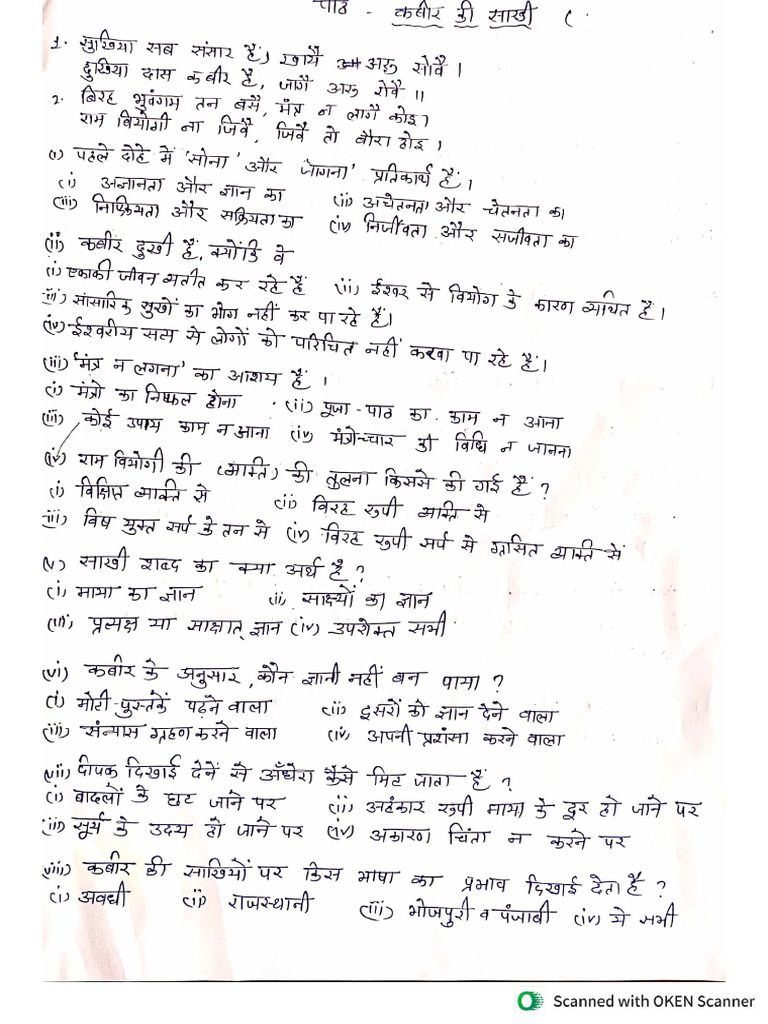 पाठ - कबीर की साखी (
1. सुखिया सब संसार है, खायै अरु सोवै ।
दुखिया दास कबीर है, जागै अरु रोवै ॥
2. बिरह भुवंगम तन बसै, मंत्र न लागै कोइ।
राम बियोगी ना जिवै, जिवै तो बौरा होइ ।
(i) पहले दोहे में 'सोना' और जागना' प्रतिकार्थ हैं।
(i) अज्ञानता और ज्ञान का (ii) अचेतनता और चेतनता का
(iii) निष्क्रियता और सक्रियता का (iv) निर्जीवता और सजीवता का
(ii) कबीर दुखी हैं, क्योंकि वे
(i) एकाकी जीवन व्यतीत कर रहे हैं (ii) ईश्वर से वियोग के कारण व्यथित हैं।
(iii) सांसारिक सुखों का भोग नहीं कर पा रहे हैं।
(iv) ईश्वरीय सत्य से लोगों को परिचित नहीं करवा पा रहे हैं।
(iii) 'मंत्र न लगना' का आशय हैं ।
(i) मंत्रो का निष्फल होना (ii) पूजा-पाठ का काम न आना
(iii) कोई उपाय काम न आना (iv) मंत्रोच्चार की विधि न जानना
(iv) राम वियोगी की (व्यक्ति) की तुलना किससे की गई हैं ?
(i) विक्षिप्त व्यक्ति से (ii) विरह रूपी व्यक्ति से
(iii) विष युक्त सर्प के तन से (iv) विरह रूपी सर्प से ग्रसित व्यक्ति से
(v) साखी शब्द का क्या अर्थ है ?
(i) माया का ज्ञान (ii) साक्ष्यों का ज्ञान
(iii) प्रत्यक्ष या साक्षात् ज्ञान (iv) उपरोक्त सभी
(vi) कबीर के अनुसार, कौन ज्ञानी नहीं बन पाया ?
(i) मोटी पुस्तकें पढ़ने वाला (ii) दूसरों को ज्ञान देने वाला
(iii) संन्यास ग्रहण करने वाला (iv) अपनी प्रशंसा करने वाला
(vii) दीपक दिखाई देनें से अँधेरा कैसे मिट जाता हैं ?
(i) बादलों के छट जाने पर (ii) अहंकार रूपी माया के दूर हो जाने पर
(iii) सूर्य के उदय हो जाने पर (iv) अकारण चिंता न करने पर
(viii) कबीर की साखियों पर किस भाषा का प्रभाव दिखाई देता है ?
(i) अवधी (ii) राजस्थानी (iii) भोजपुरी व पंजाबी (iv) ये सभी
Scanned with OKEN Scanner